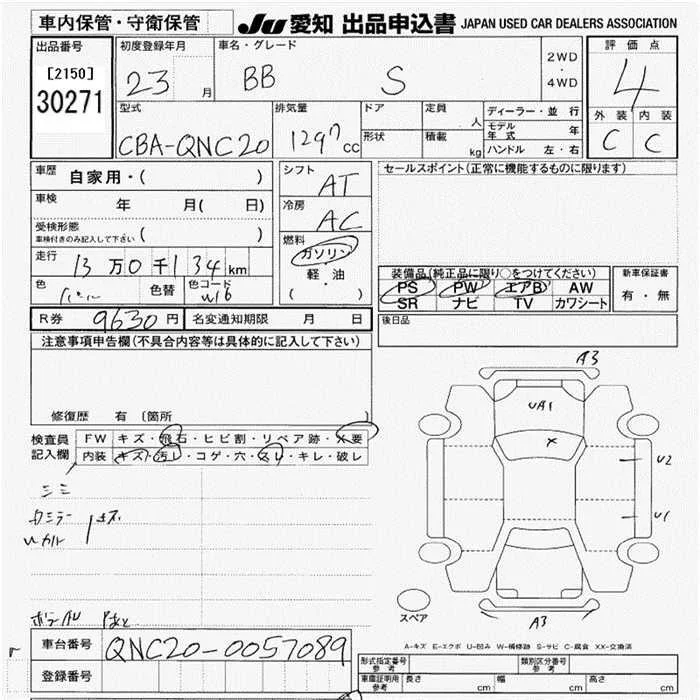 車内保管・守衛保管 JU 愛知 出品申込書 JAPAN USED CAR DEALERS ASSOCIATION
出品番号 初度登録年月 車名・グレード 2WD・4WD 評価点
[2150] 23 月 BB S 4
30271
型式 排気量 ドア 定員 人 ディーラー・並行 外装 内装
CBA-QNC20 1297cc 形状 積載 kg モデル年式 年 C C
ハンドル 左・右
車歴 自家用・( ) シフト AT セールスポイント(正常に機能するものに限ります)
車検 年 月( 日) 冷房 AC
受検形態 ( )
車検付きのみ記入して下さい
燃料 ガソリン・軽・油 ( )
走行 13万0千134km
色 パール 色替 色コード W16
装備品(純正品に限り○をつけてください) 新車保証書
PS PW エアB AW 有・無
SR ナビ TV カワシート
R券 9630円 名変通知期限 月 日 後日品
注意事項申告欄(不具合内容等は具体的に記入して下さい)
修復歴 有 〔箇所 〕
検査員記入欄 FW キズ・飛石・ヒビ割・リペア跡・X要
内装 キズ・汚レ・コゲ・穴・スレ・キレ・破レ
A3
UA1
X
U2
U1
シミ
キズ
A3
スペア
A-キズ E-エクボ U-凹み W-補修跡 S-サビ C-腐食 XX-交換済
車台番号 QNC20-0057089
登録番号
型式指定番号 参考 類別区分番号 参考
車庫証明用 参考 長さ cm 幅 cm 高さ cm